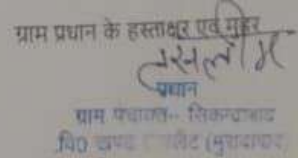 ग्राम प्रधान के हस्ताक्षर एवं मुहर
तसलीम
प्रधान
ग्राम पंचायत-- सिकन्दराबाद
वि0 खण्ड (मुरादाबाद)